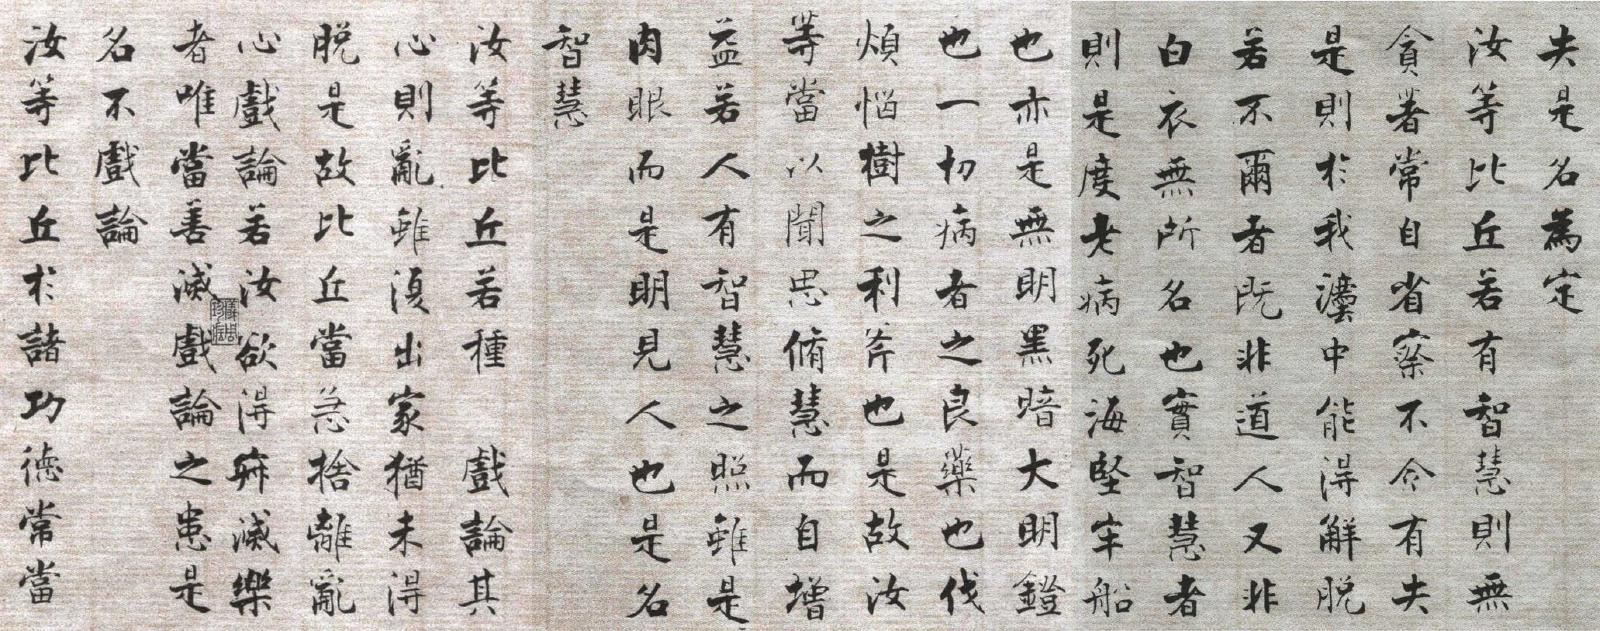 失是名為定
汝等比丘若有智慧則無
貪著常自省察不令有失
是則於我灋中能得解脫
若不爾者既非道人又非
白衣無所名也實智慧者
則是度老病死海堅牢船
也亦是無明黑暗大明鐙
也一切病者之良藥也伐
煩惱樹之利斧也是故汝
等當以聞思脩慧而自增
益若人有智慧之照雖是
肉眼而是明見人也是名
智慧
汝等比丘若種戲論其
心則亂雖復出家猶未得
脫是故比丘當急捨離亂
心戲論若汝欲得寂滅樂
者唯當善滅戲論之患是
名不戲論
汝等比丘於諸功德常當